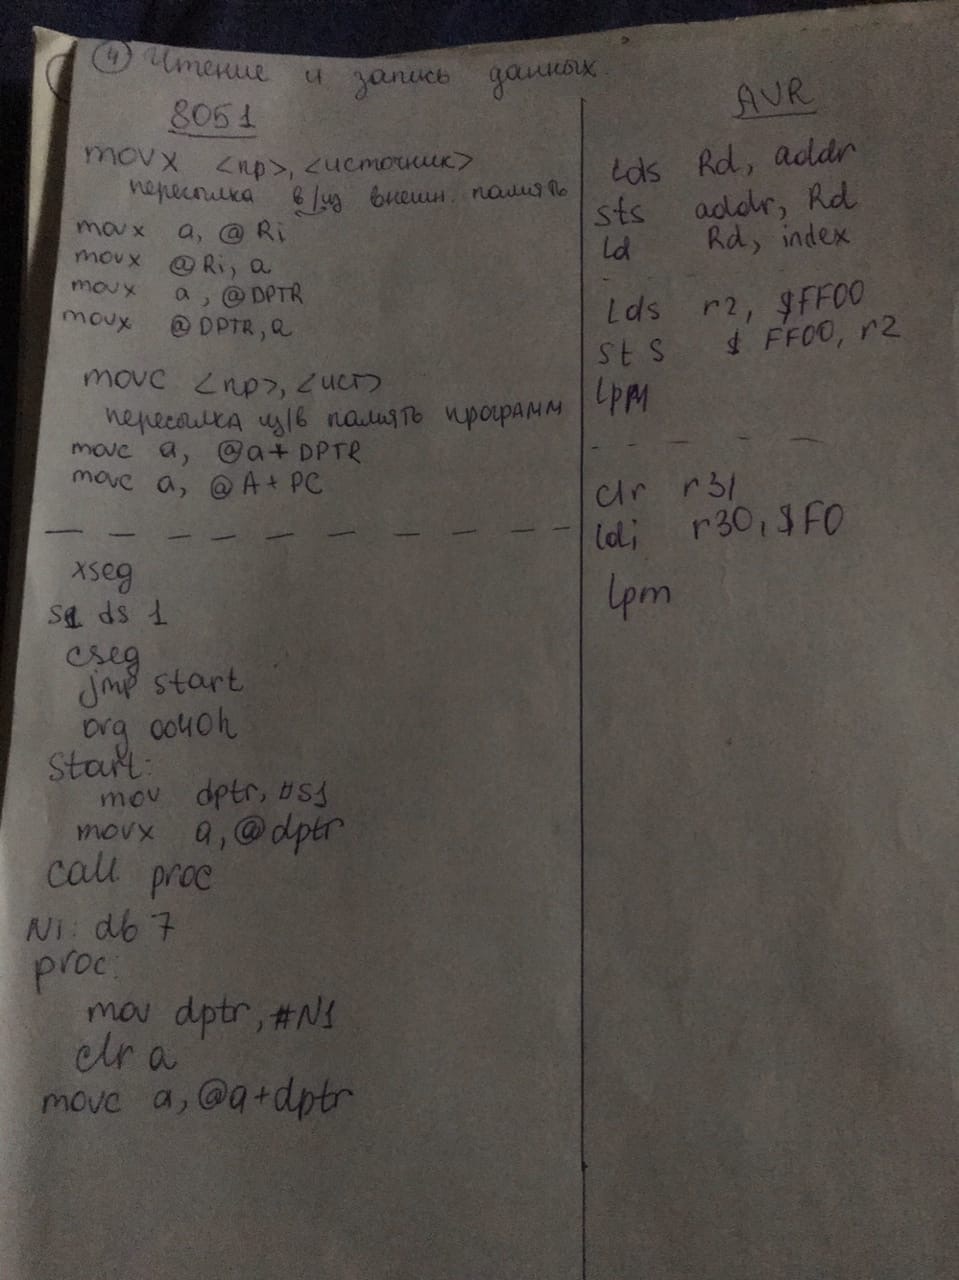 4 Чтение и запись данных.
8051
movx <пр>, <источник>
пересылка в/из внешн. память
movx a, @Ri
movx @Ri, a
movx a, @DPTR
movx @DPTR, a
movc <пр>, <ист>
пересылка из/в память программ
movc a, @a+DPTR
movc a, @A+PC
xseg
s1 ds 1
cseg
jmp start
org 0040h
Start:
mov dptr, #S1
movx a, @dptr
call proc
N1: db 7
proc:
mov dptr, #N1
clr a
movc a, @a+dptr
AVR
lds Rd, addr
sts addr, Rd
ld Rd, index
lds r2, $FF00
sts $FF00, r2
lpm
clr r31
ldi r30, $F0
lpm